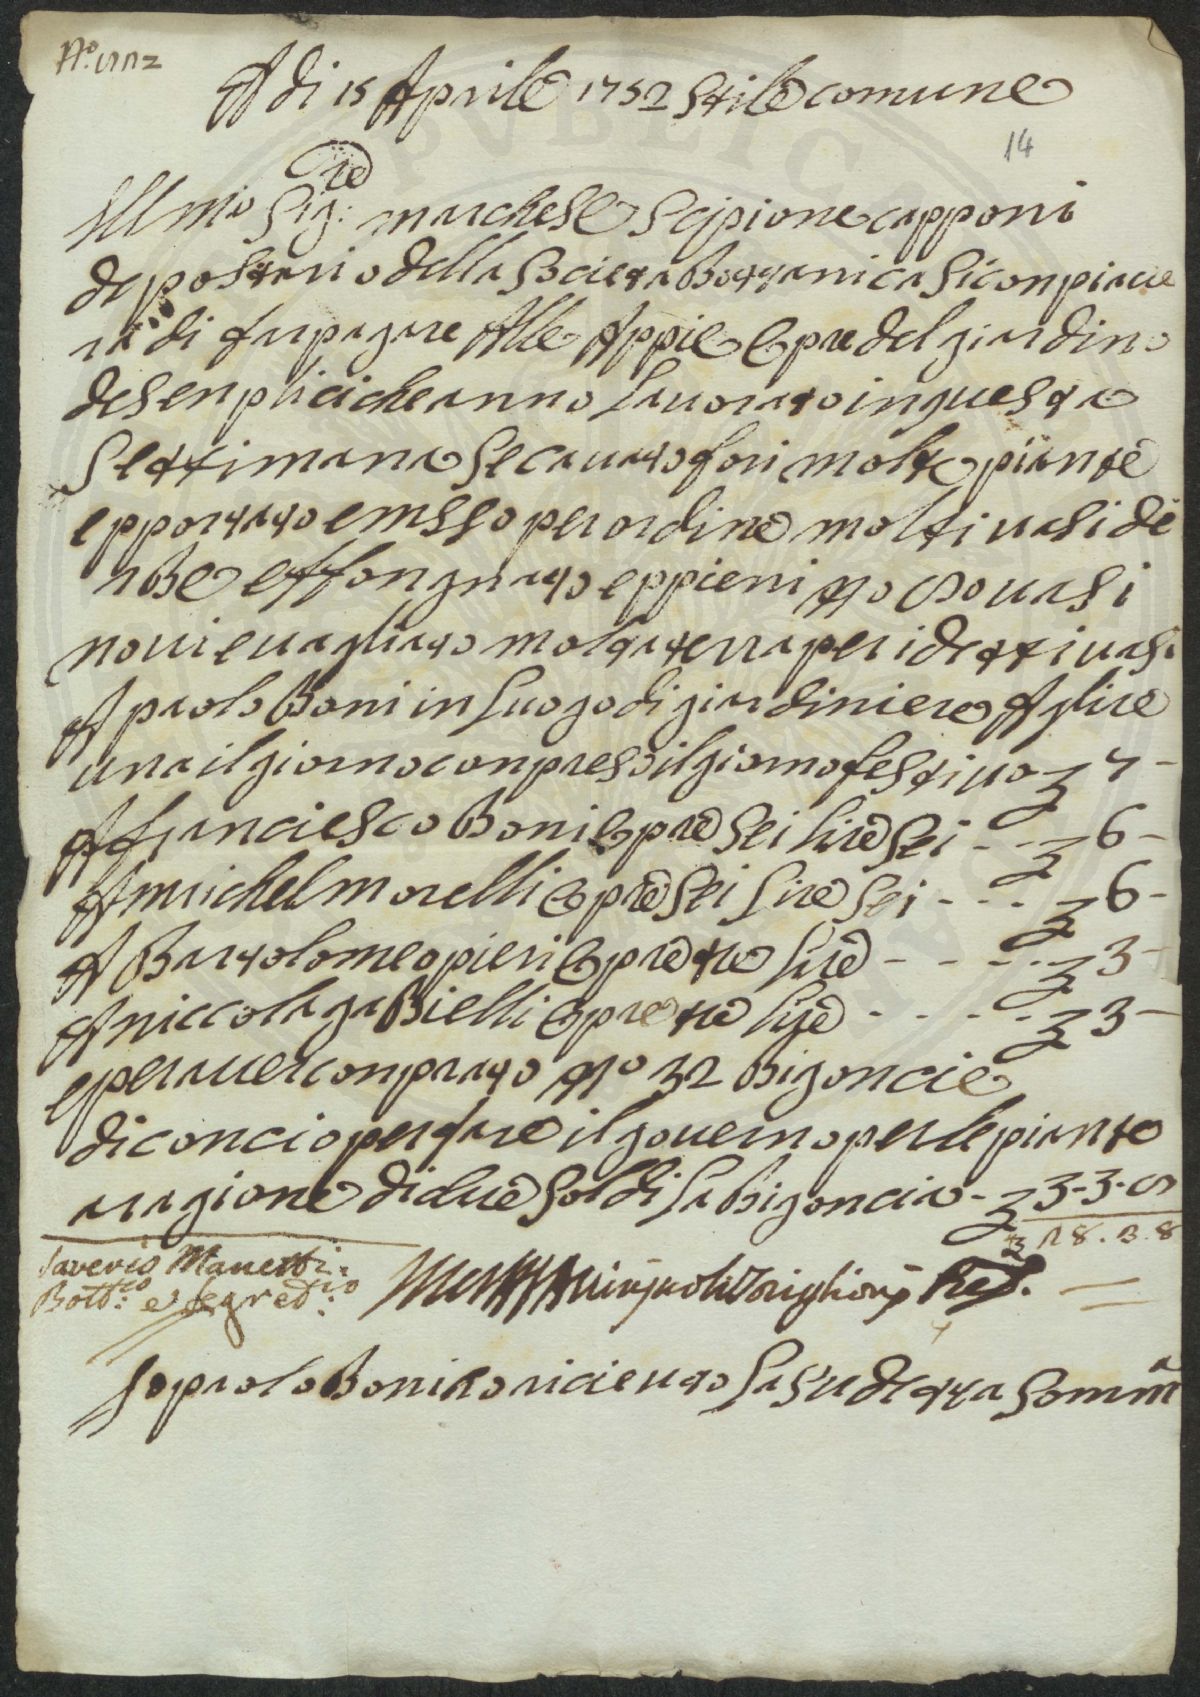 A di 15 Aprile 1752 stile comune
14
Ill mo Sig:re marchese Scipione capponi
depositario della Societa Bottanica si conpiacie
ra di far pagare Alle Appie Opre del giardino
de senplici che anno lauorato in questa
Settimana Se cauato fori molte piante
epportato e messo per ordine molti uasi di
rbe effongniato eppieni No uasi
noui e uagliato molta terra per i detti uasi
A paolo Boni in luogo di giardiniere A lire
una il giorno conpreso il giorno festiuo 7 -
A franciesco Boni Opre sei lire sei - - 6 -
A michel morelli Opre sei lire sei - - - 6 -
A Bartolomeo pieri Opre tre lire - - - - 3 -
A niccola gabielli Opre tre lire - - - - 3 -
e per auer conprato No 32 Bigoncie
di concio per fare il gouerno per le piante
a ragione di due soldi la bigoncia - 3 - 3 -
28 . 3 . 8
Saverio Manetti
Bott:co e Segret:rio
Io paolo Boni o riceuto la su detta somma